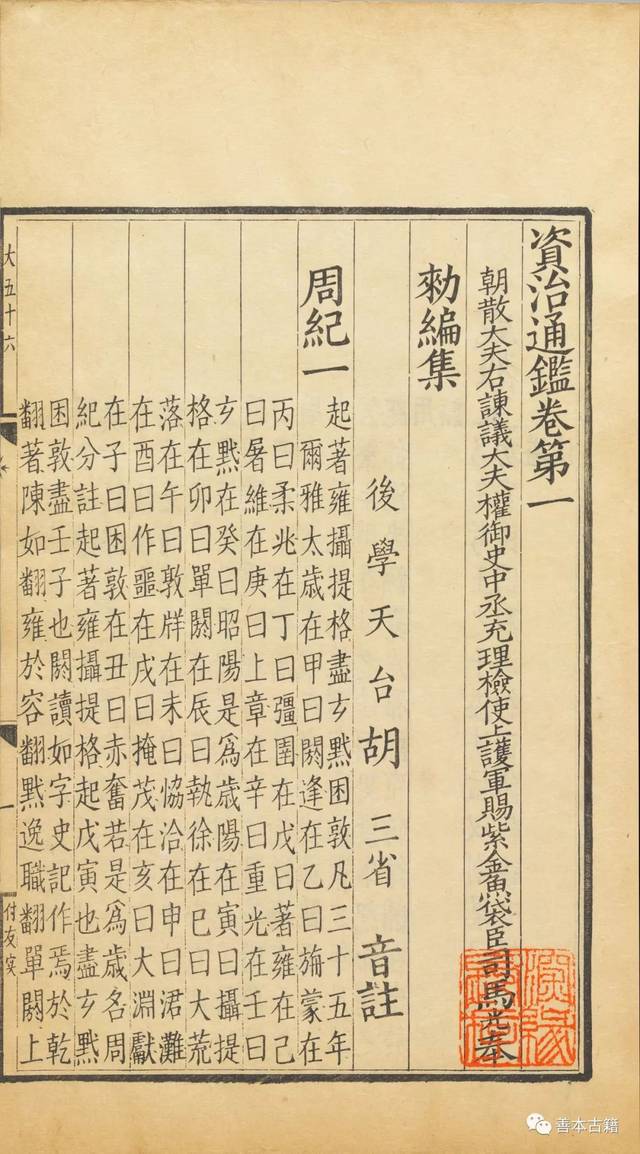 資治通鑑卷第一
朝散大夫右諫議大夫權御史中丞充理檢使上護軍賜紫金魚袋臣司馬光奉
勑編集
後學天台胡三省音註
周紀一
起著雍攝提格盡玄黓困敦凡三十五年
爾雅太歲在甲曰閼逢在乙曰旃蒙在
丙曰柔兆在丁曰彊圉在戊曰著雍在己
曰屠維在庚曰上章在辛曰重光在壬曰
玄黓在癸曰昭陽是為歲陽在寅曰攝提
格在卯曰單閼在辰曰執徐在巳曰大荒
落在午曰敦牂在未曰協洽在申曰涒灘
在酉曰作噩在戌曰掩茂在亥曰大淵獻
在子曰困敦在丑曰赤奮若是為歲名周
紀分註起著雍攝提格起戊寅也盡玄黓
困敦盡壬子也閼讀如字史記作焉於乾
翻著陳如翻雍於容翻黓逸職翻單閼上
大五十六
一
付友实
善本古籍